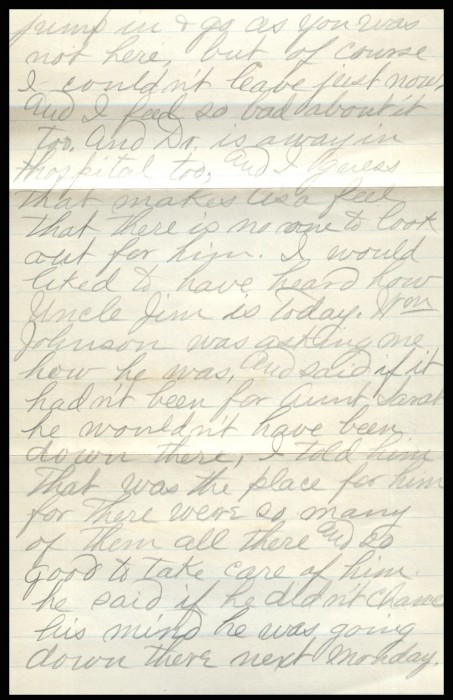 jump in & go as you was
not here, but of course
I couldn't leave just now,
And I feel so bad about it
too. And Dr. is away in
Hospital too, and I guess
that makes us a feel
that there is no one to look
out for him. I would
liked to have heard how
Uncle Jim is today. Wm
Johnson was asking me
how he was, and said if it
hadn't been for Aunt Sarah
he wouldn't have been
down there, I told him
that was the place for him
for there were so many
of them all there and so
good to take care of him.
he said if he didn't change
his mind he was going
down there next Monday.